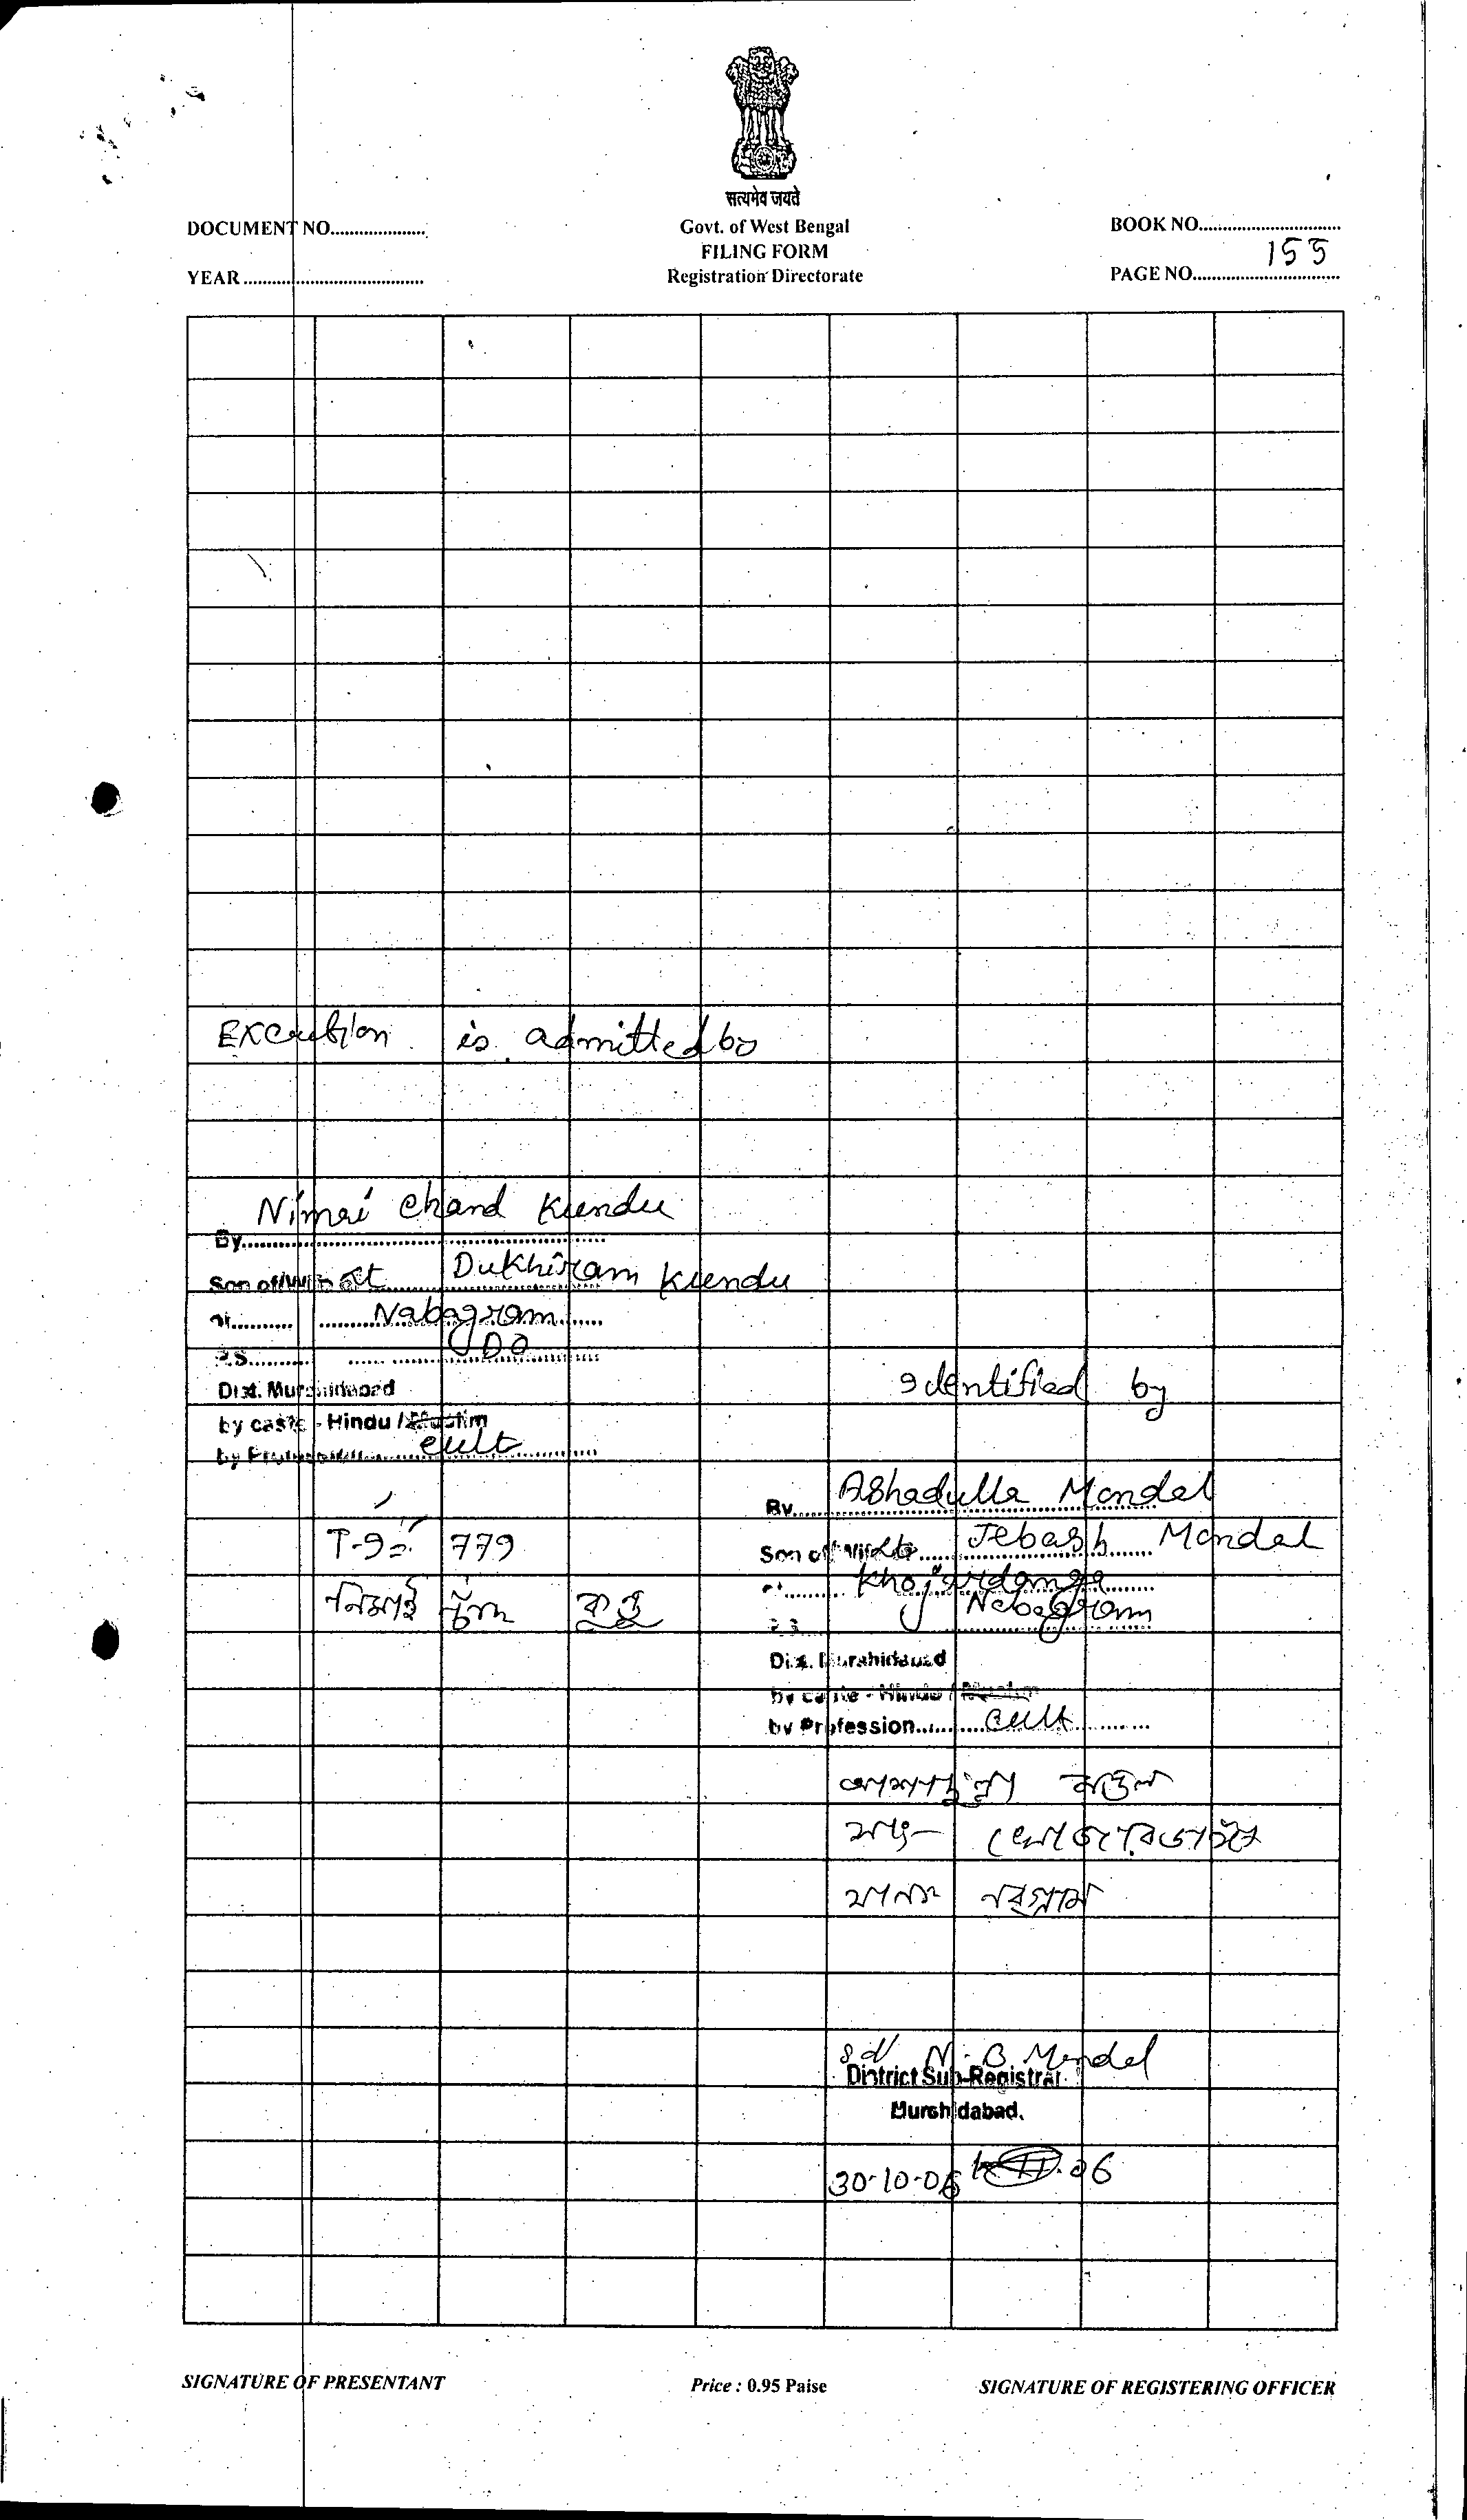 सत्यमेव जयते
DOCUMENT NO.....................
Govt. of West Bengal
BOOK NO..............................
FILING FORM
155
YEAR ........................................
Registration Directorate
PAGE NO...............................
Execution is admitted by
Nimai Chand Kundu
By........................................
Son of/Wife Lt Dukhiram Kundu
At........... Nabagram
P.S........... Do
Dist. Murshidabad
by caste - Hindu / Muslim
by Profession........ cult
Identified by
By..... Ashadulla Mondal
T-9 779
Son of Jebash Mondal
নিমাই চাঁদ কুন্ডু
Nabagram
P.S.
Dist. Murshidabad
by caste - Hindu / Muslim
by Profession.......... cult
মন্ডল
সাং-
থানা নবগ্রাম
Sd/ N. B. Mondal
District Sub-Registrar
Murshidabad.
30-10-06
SIGNATURE OF PRESENTANT
Price : 0.95 Paise
SIGNATURE OF REGISTERING OFFICER